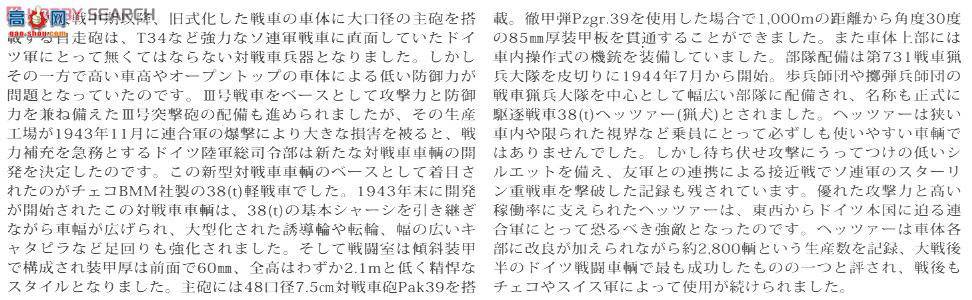 戦期以降、旧式化した戦車の車体に大口径の主砲を搭
載する自走砲は、T34など強力なソ連軍戦車に直面していたドイ
ツ軍にとって無くてはならない対戦車兵器となりました。しかし
その一方で高い車高やオープントップの車体による低い防御力が
問題となっていたのです。Ⅲ号戦車をベースとして攻撃力と防御
力を兼ね備えたⅢ号突撃砲の配備も進められましたが、その生産
工場が1943年11月に連合軍の爆撃により大きな損害を被ると、戦
力補充を急務とするドイツ陸軍総司令部は新たな対戦車車輌の開
発を決定したのです。この新型対戦車車輌のベースとして着目さ
れたのがチェコBMM社製の38(t)軽戦車でした。1943年末に開発
が開始されたこの対戦車車輌は、38(t)の基本シャーシを引き継ぎ
ながら車幅が広げられ、大型化された誘導輪や転輪、幅の広いキ
ャタピラなど足回りも強化されました。そして戦闘室は傾斜装甲
で構成され装甲厚は前面で60㎜、全高はわずか2.1mと低く精悍な
スタイルとなりました。主砲には48口径7.5㎝対戦車砲Pak39を搭
載。徹甲弾Pzgr.39を使用した場合で1,000mの距離から角度30度
の85㎜厚装甲板を貫通することができました。また車体上部には
車内操作式の機銃を装備していました。部隊配備は第731戦車猟
兵大隊を皮切りに1944年7月から開始。歩兵師団や擲弾兵師団の
戦車猟兵大隊を中心として幅広い部隊に配備され、名称も正式に
駆逐戦車38(t)ヘッツァー(猟犬)とされました。ヘッツァーは狭い
車内や限られた視界など乗員にとって必ずしも使いやすい車輌で
はありませんでした。しかし待ち伏せ攻撃にうってつけの低いシ
ルエットを備え、友軍との連携による接近戦でソ連軍のスターリ
ン重戦車を撃破した記録も残されています。優れた攻撃力と高い
稼働率に支えられたヘッツァーは、東西からドイツ本国に迫る連
合軍にとって恐るべき強敵となったのです。ヘッツァーは車体各
部に改良が加えられながら約2,800輌という生産数を記録、大戦後
半のドイツ戦闘車輌で最も成功したものの一つと評され、戦後も
チェコやスイス軍によって使用が続けられました。